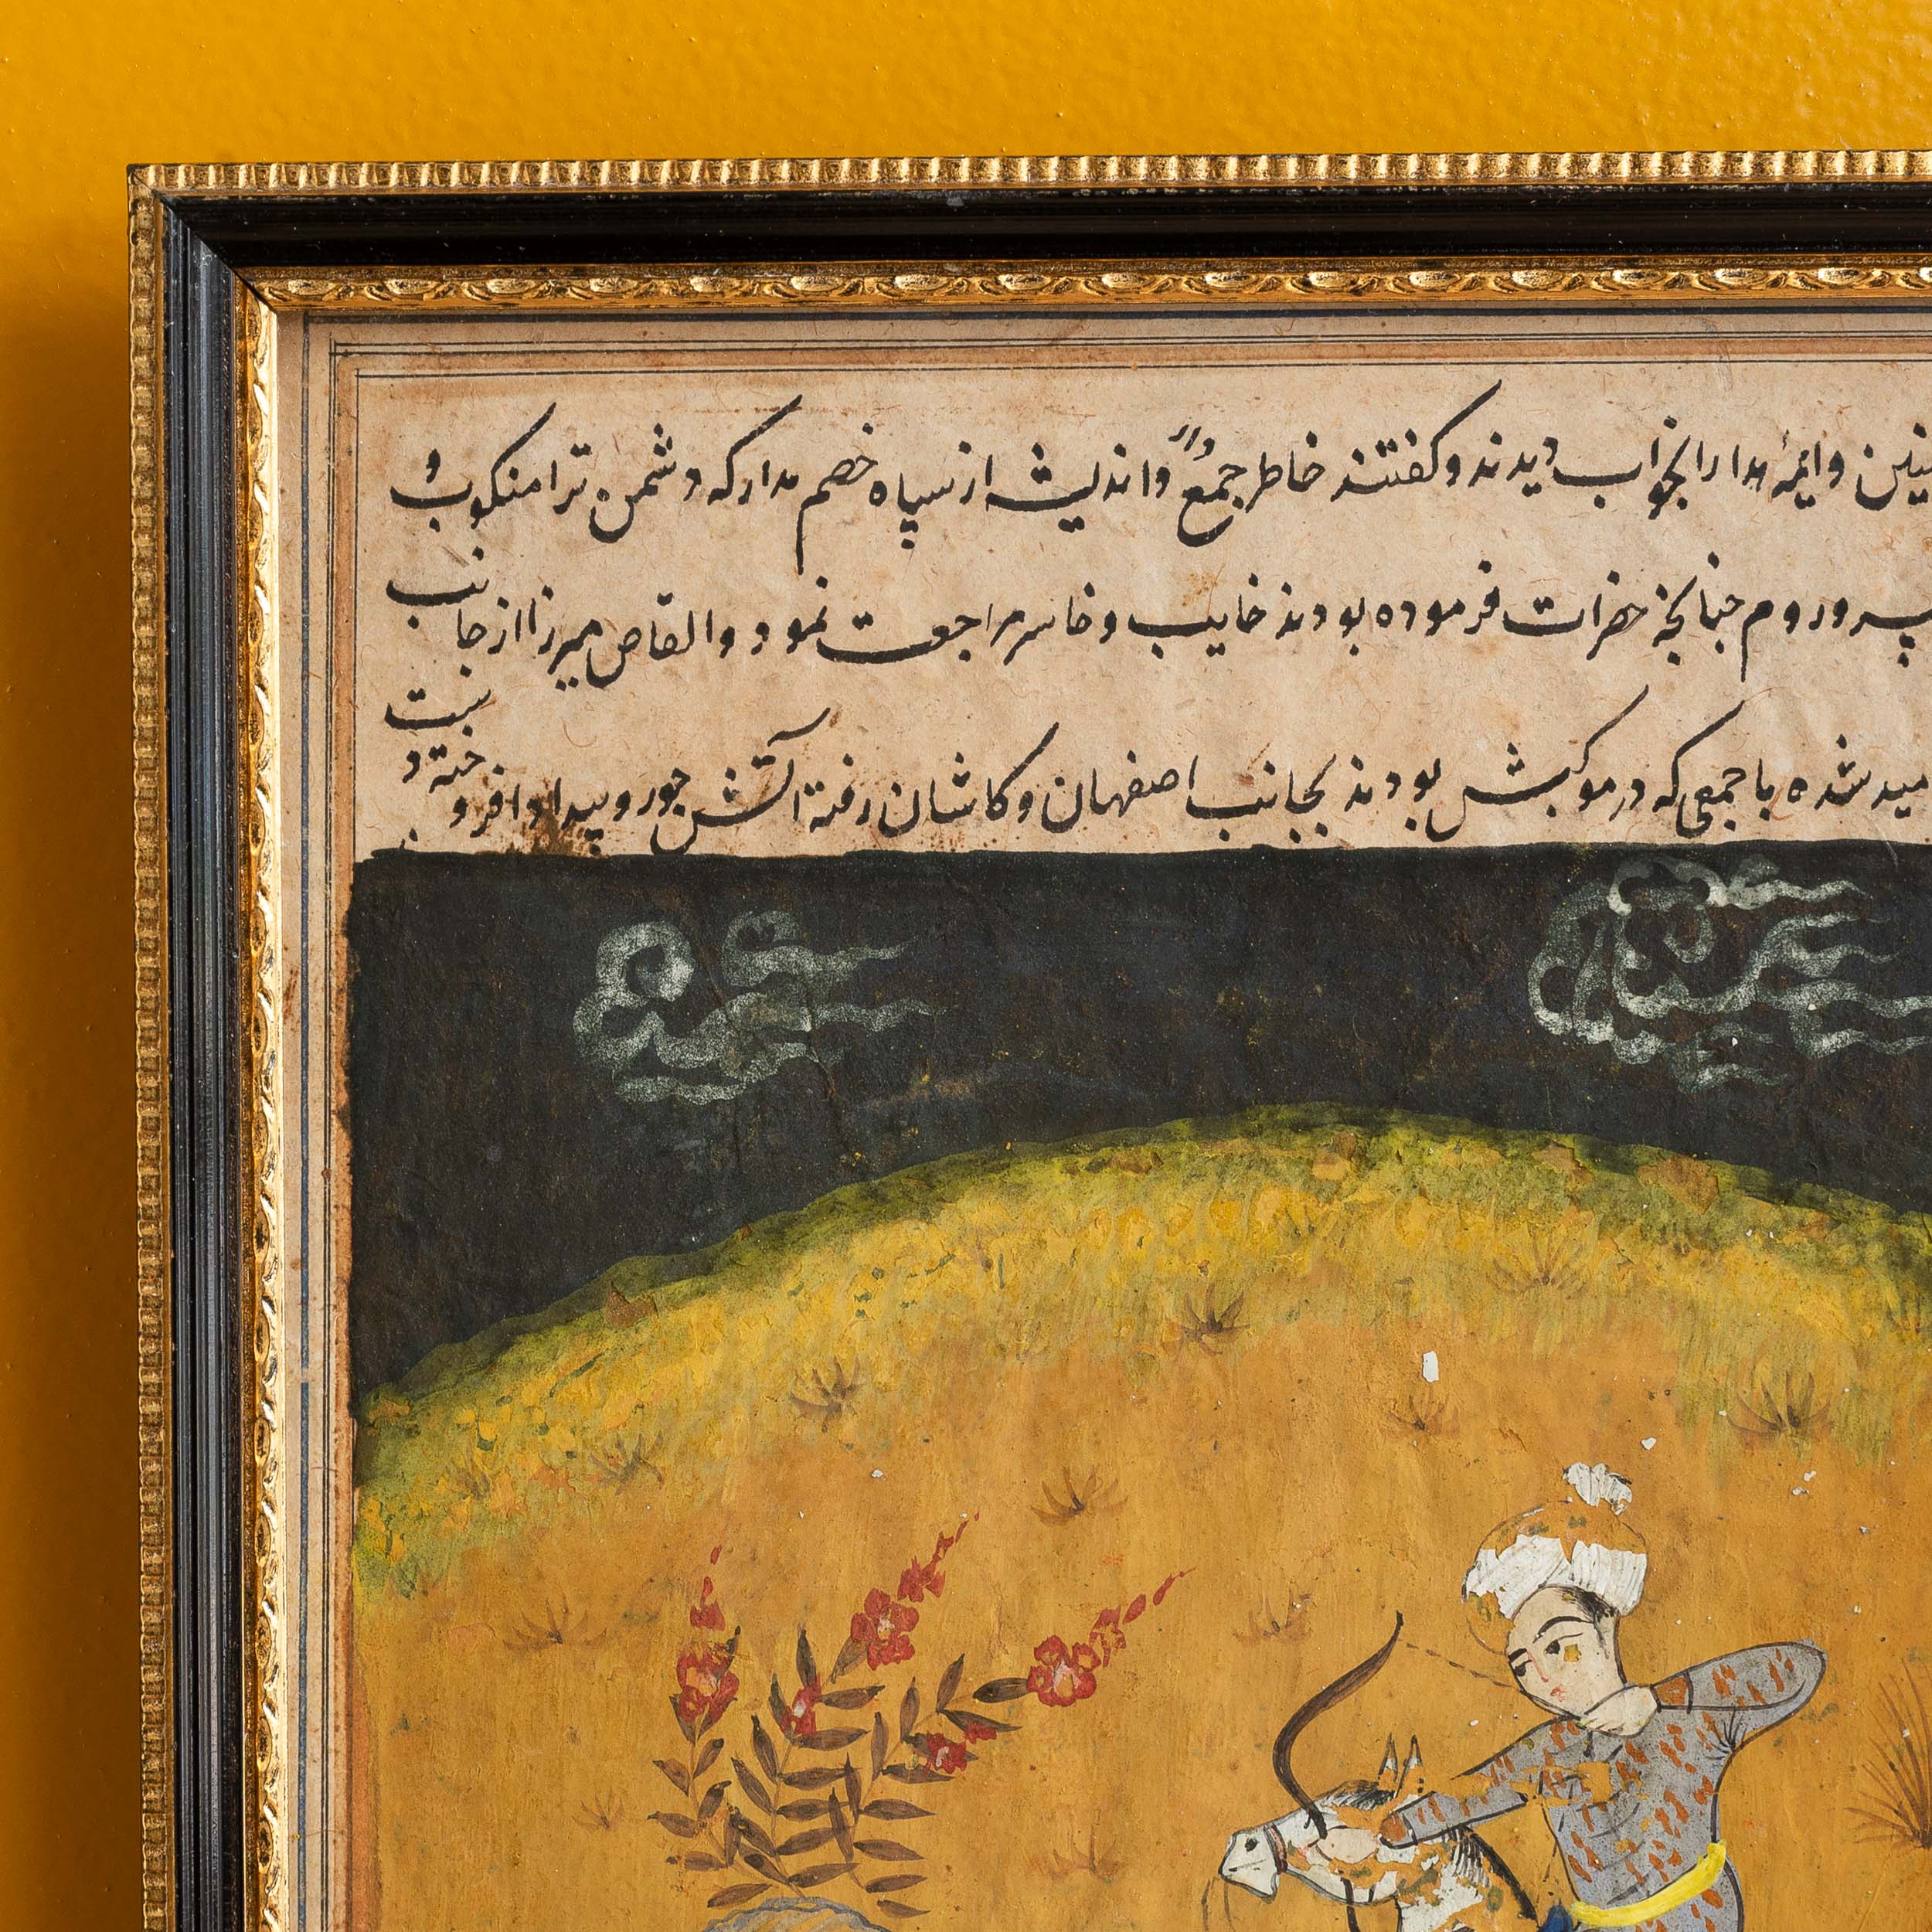 وایمهٔ هدا را بخواب دیدند و کفتند خاطر جمع دار و اندیشه از سپاه خصم مدار که دشمن ترا منکوب و
پرور روم چنانچه حضرات فرموده بودند خایب و خاسر مراجعت نمود و القاص میرزا از جانب
شده با جمعی که در موکبش بودند بجانب اصفهان و کاشان رفته آتش جور و بیداد افروخته و